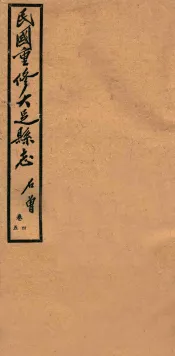 民國重修大足縣志
石曾
卷四
五